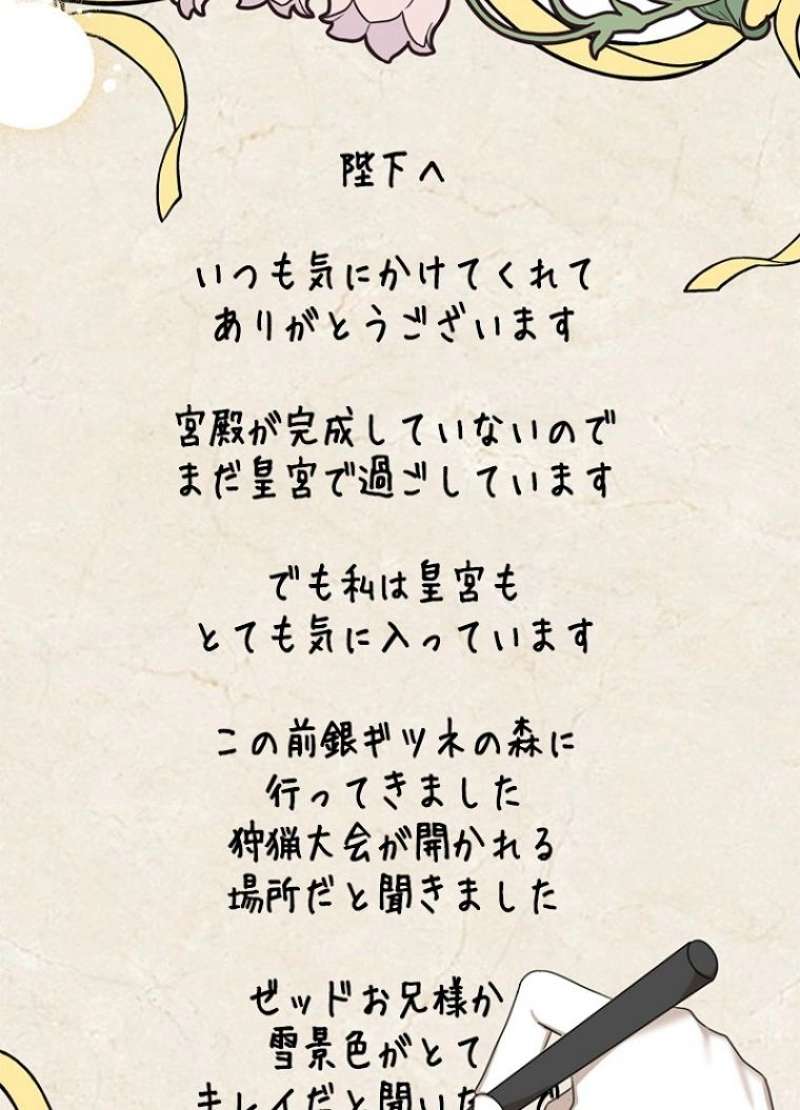 陛下へ
いつも気にかけてくれて
ありがとうございます
宮殿が完成していないので
まだ皇宮で過ごしています
でも私は皇宮も
とても気に入っています
この前銀ギツネの森に
行ってきました
狩猟大会が開かれる
場所だと聞きました
ゼッドお兄様か
雪景色がとて
キレイだと聞いた